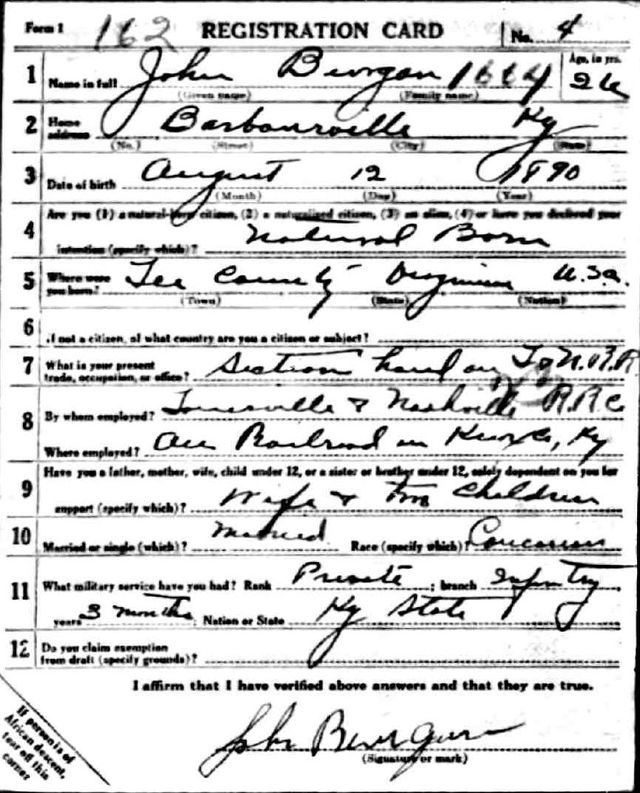 Form 1 162 REGISTRATION CARD No. 4
1 Name in full John Beurgan 1664 Age, in yrs. 26
(Given name) (Family name)
2 Home address Barbourville Ky
(No.) (Street) (City) (State)
3 Date of birth August 12 1890
(Month) (Day) (Year)
4 Are you (1) a natural-born citizen, (2) a naturalized citizen, (3) an alien, (4) or have you declared your
intention (specify which)? Natural Born
5 Where were you born? Lee County Virginia U.S.a.
(Town) (State) (Nation)
6 If not a citizen, of what country are you a citizen or subject?
7 What is your present trade, occupation, or office? Section hand on L & N. R.R.
8 By whom employed? Louisville & Nashville R.R. Co
Where employed? On Railroad in Knox Co, Ky
9 Have you a father, mother, wife, child under 12, or a sister or brother under 12, solely dependent on you for
support (specify which)? Wife & two Children
10 Married or single (which)? Married Race (specify which)? Caucasian
11 What military service have you had? Rank Private ; branch Infantry ;
years 3 months ; Nation or State Ky State
12 Do you claim exemption
from draft (specify grounds)?
I affirm that I have verified above answers and that they are true.
John Beurgan
(Signature or mark)
If person is of
African descent,
tear off this
corner